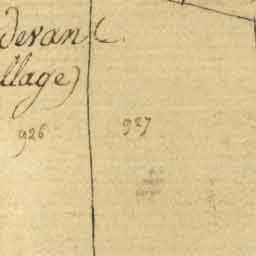 devant
llage)
926
927